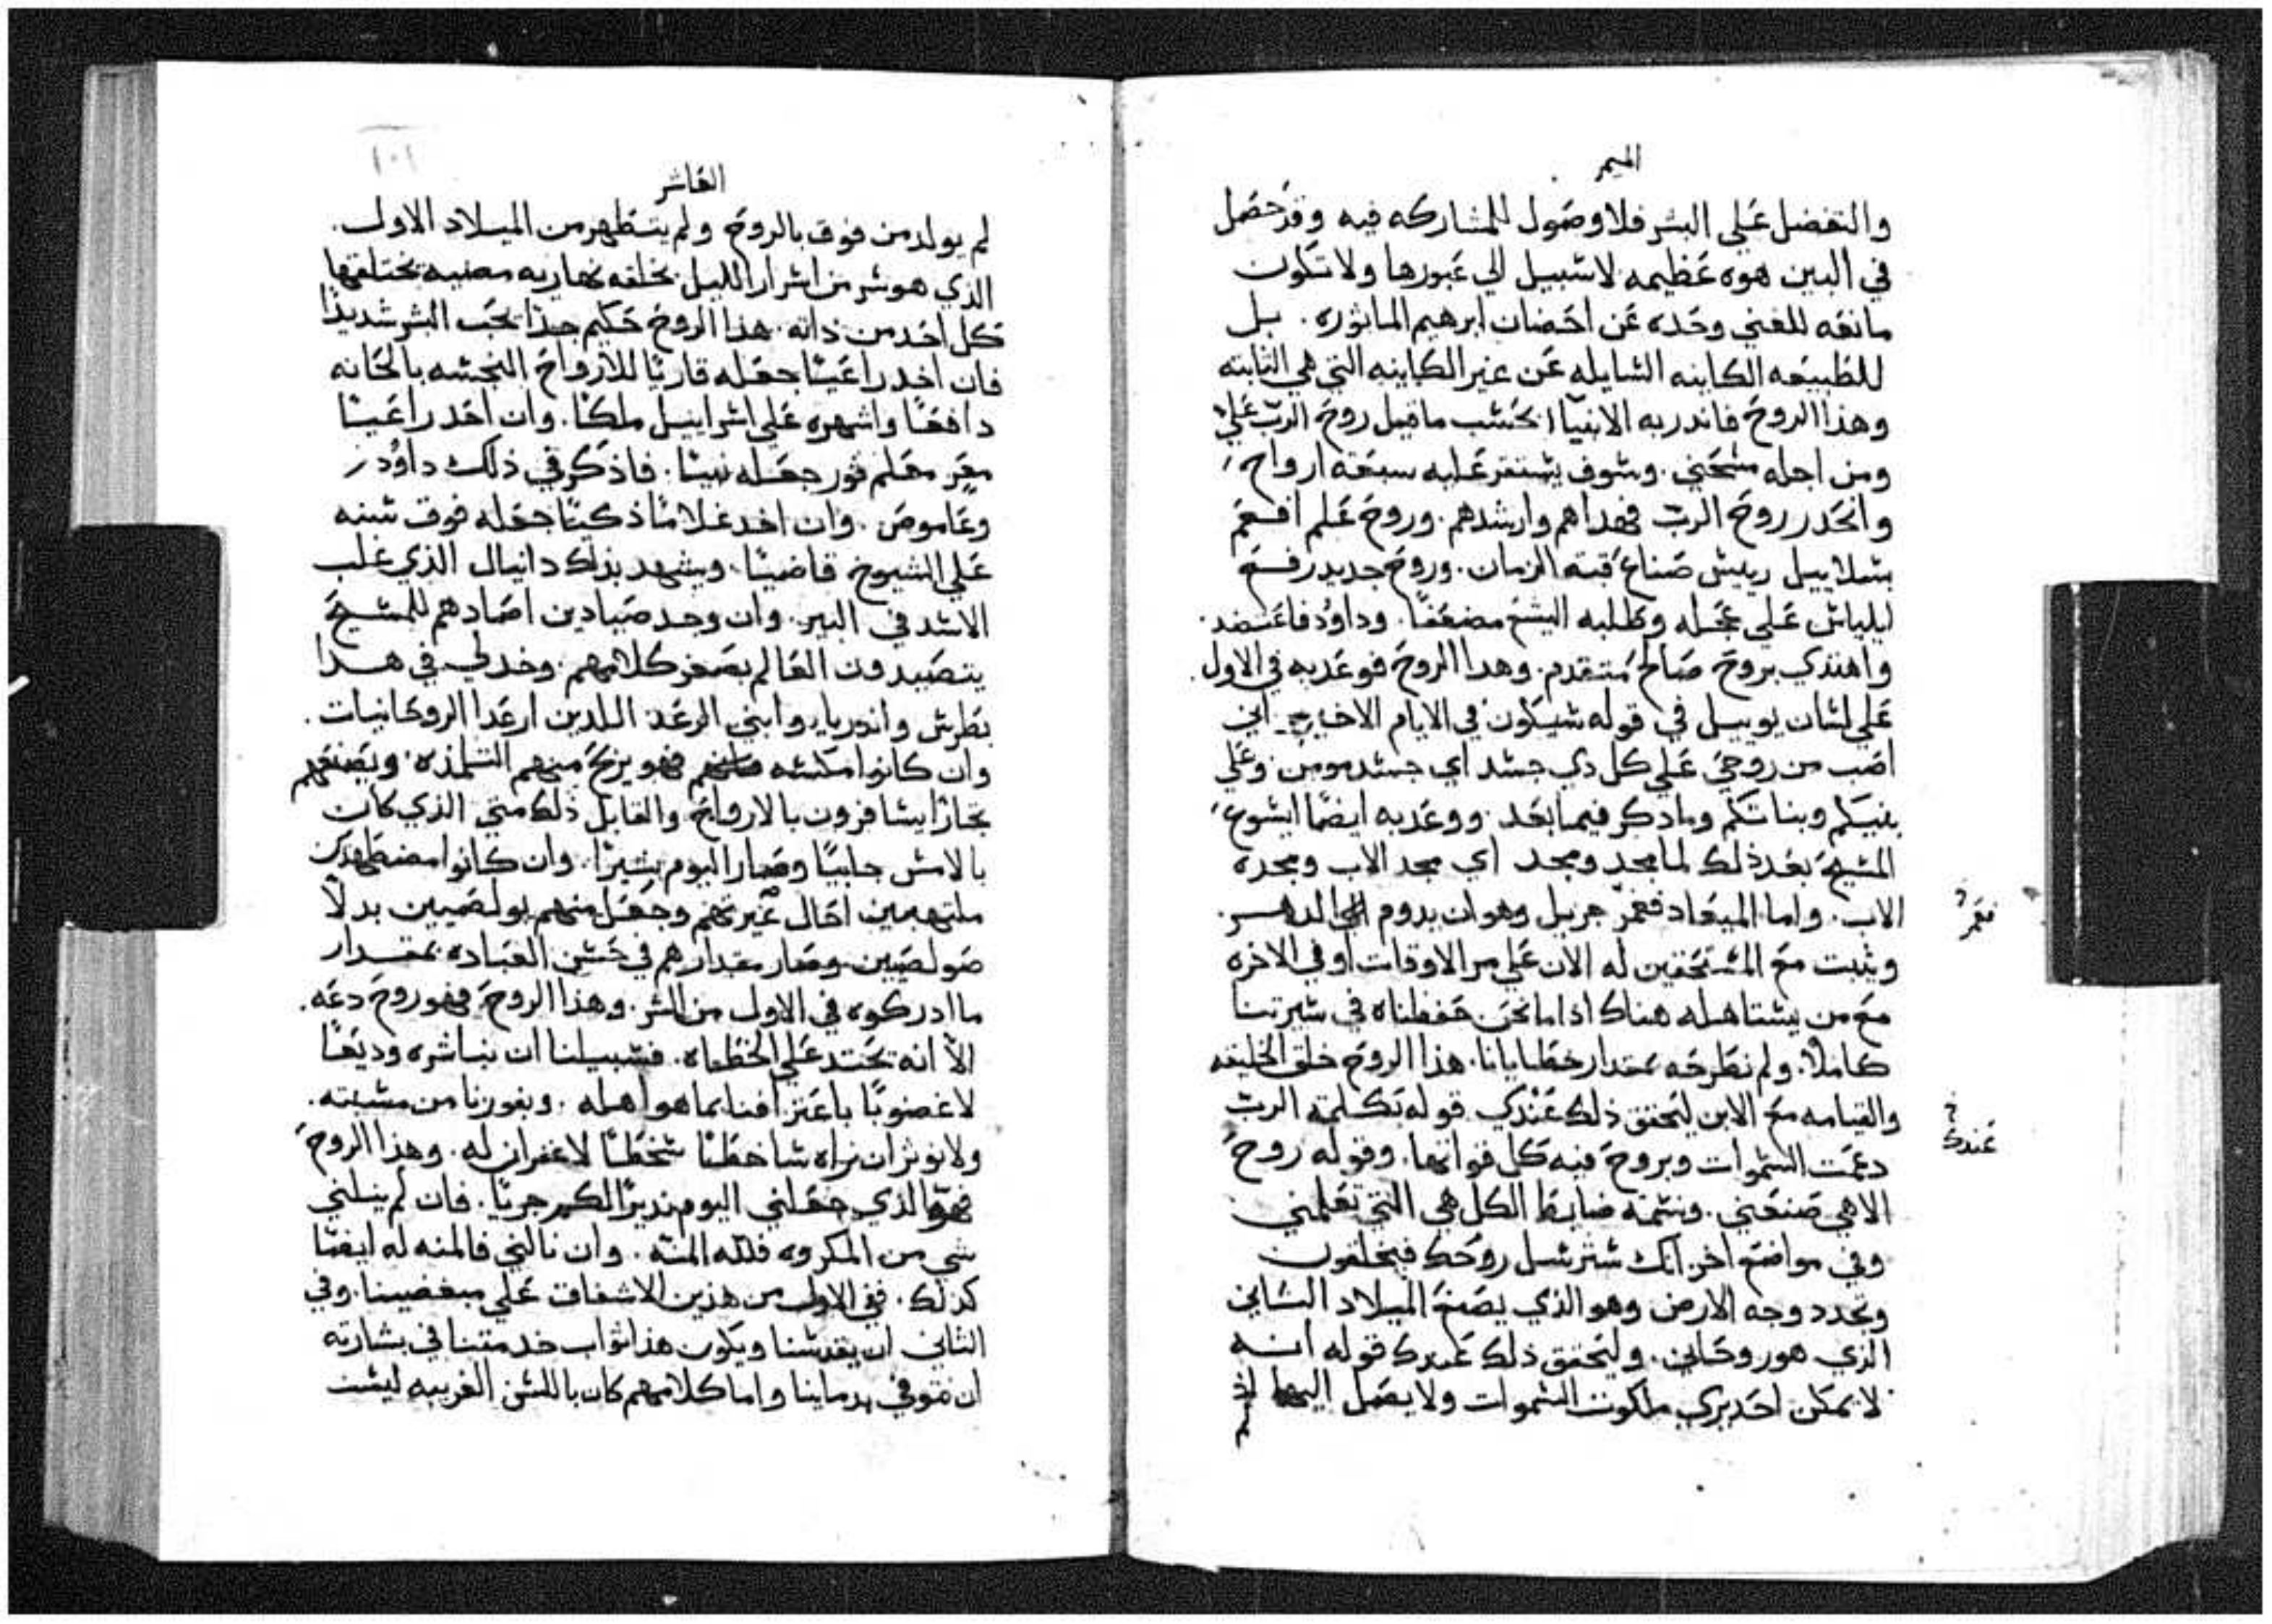 الميمر
والتفضل عَلي البشر فلا وصول للمشاركه فيه وقد حصَل
في البين هوه عَظيمه لا سبيل الي عَبورها ولا تكون
مانعَه للغني وحَده عَن احَضان ابرهيم الماثوره. بل
للطَبيعَه الكاينه السايله عَن غير الكاينه التي هي الثابته
وهذا الروحَ فاندر به الانبيا بحَسب ما قيل روحَ الربّ عَليّ
ومن اجله مسَحَني. وسوف يستقر عَليه سبعَة ارواح
وانحَدر روحَ الربّ فهداهم وارشدهم. وروحَ عَلم افعَم
بسلاييل رييس صَناع قبة الزمان. وروحَ جديد رفعَ
ايلياس عَلي عَجله وطَلبه اليسع مضعَفًا. وداوُد فاعَتضد
واهتدي بروحَ صَالح متقدم. وهدا الروحَ فوعَد به في الاول
عَلي لسَان يوييل في قوله سيكون في الايام الاخيره اني
اصَب من روحي عَلي كل دي جسد اي جسد مومن وعَلي
بنيكم وبناتكم وما دكر فيما بعَد. ووعَد به ايضًا ايسوع
المسيحَ بعَد ذلك لما مجد ومجد اي مجد الاب ومجده
الاب. واما الميعَاد فعَمرٌ جزيل وهو ان يدوم الي الدهر
ويثبت معَ المستَحَقين له الان عَلي مر الاوقات او في الاخره
معَ من يستاهله هناك اذا ما نحَن حَفظناه في سيرتنا
كاملاً. ولم نطَرحَه بمقدار خطَايانا. هذا الروحَ خلق الخليقه
والقيامه معَ الابن ليَحقق ذلك عَندك قوله بكلمة الربّ
دعَمت السَموات وبروحَ فيه كل قواتها. وقوله روحَ
الاهي صَنعَني. ونسمة ضابط الكل هي التي تعَلمني
وفي مواضعَ اخر انك سترسل روحَك فيخلقون
وتجدد وجه الارض وهو الذي يصَنعَ الميلاد الثاني
الذي هو روحَاني. وليَحقق ذلك عَندك قوله انه
لا يمكن احَد يري ملكوت السَموات ولا يصَل اليها اذ
فعَمر
عَندك
العَاشر
لم يولد من فوق بالروحَ ولم يتَطهر من الميلاد الاول
الذي هو سر من اسرار الليل بخلقه نهاريه مضيه يختلقها
كل احَد من ذاته. هذا الروحَ حَكيم جدًا يحَب البشر شديدًا
فان اخد راعَيًا جعَله قاريًا للارواحَ النجسه بالحَانه
دافعَا واشهره عَلي اسراييل ملكًا. وان اخَد راعَيًا
معَز معَلم قور جعَله نبيًا. فاذكر في ذلك داوُد
وعَاموصَ. وان اخد غلامًا ذكيًا جعَله فوق سنه
عَلي الشيوخ قاضيًا. ويشهد بذلك دانيال الذي غلب
الاسد في البير. وان وجد صَيادين اصَادهم للمسيحَ
يتصَيدون العَالم بصَغر كلامهم. وخد لي في هدا
بطَرس واندريا. وابني الرعَد اللدين ارعَدا الروحَانيات.
وان كانوا مكسه فهو يربحَ منهم التلمذه. ويصَنعَهم
تجارًا يسافرون بالارواحَ والقايل ذلك متي الذي كان
بالامس جابيًا وصَار اليوم بشيرًا. وان كانوا مضطَهدين
ملتهبين احَال غيرتهم وجعَل منهم بولصَيين بدلاً
صَولصَيين وصَار مقدارهم في حَسن العَباده بمقدار
ما ادركوه في الاول من الشر. وهذا الروحَ فهو روحَ دعَه.
الاّ انه يحَتد عَلي الخطَاه. فسَبيلنا ان نباشره وديعًا
لا غضوبًا باعَترافنا بما هو اهله. وبفوزنا من مشيته.
ولا نوثر ان نراه ساخطًا سَخطًا لا غفران له. وهذا الروحَ
فهو الذي جعَلني اليوم نديرًا لكم جريًا. فان لم ينلني
شي من المكروه فللّه المنّه. وان نالني فالمنه له ايضًا
كدلك. ففي الاول من هذين الاشفاق عَلي مبغضينا. وفي
الثاني ان يقدسَنا ويكون هذا ثواب خدمتنا في بشارته
ان نتوفي بدماينا واما كلامهم كان باللسن الغريبه ليسَت